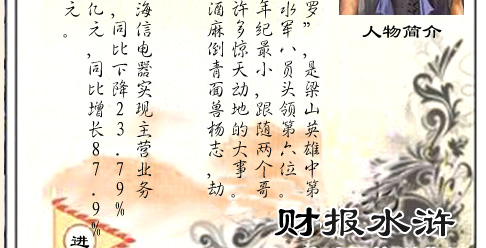 人物简介
罗”，是梁山英雄中第
水军八员头领第六位。
年纪最小，跟随两个哥
许多惊天动地的大事。
酒麻倒青面兽杨志，劫
海信电器实现主营业务
，同比下降23.79%
亿元，同比增长87.9%
元。
财报水浒
进